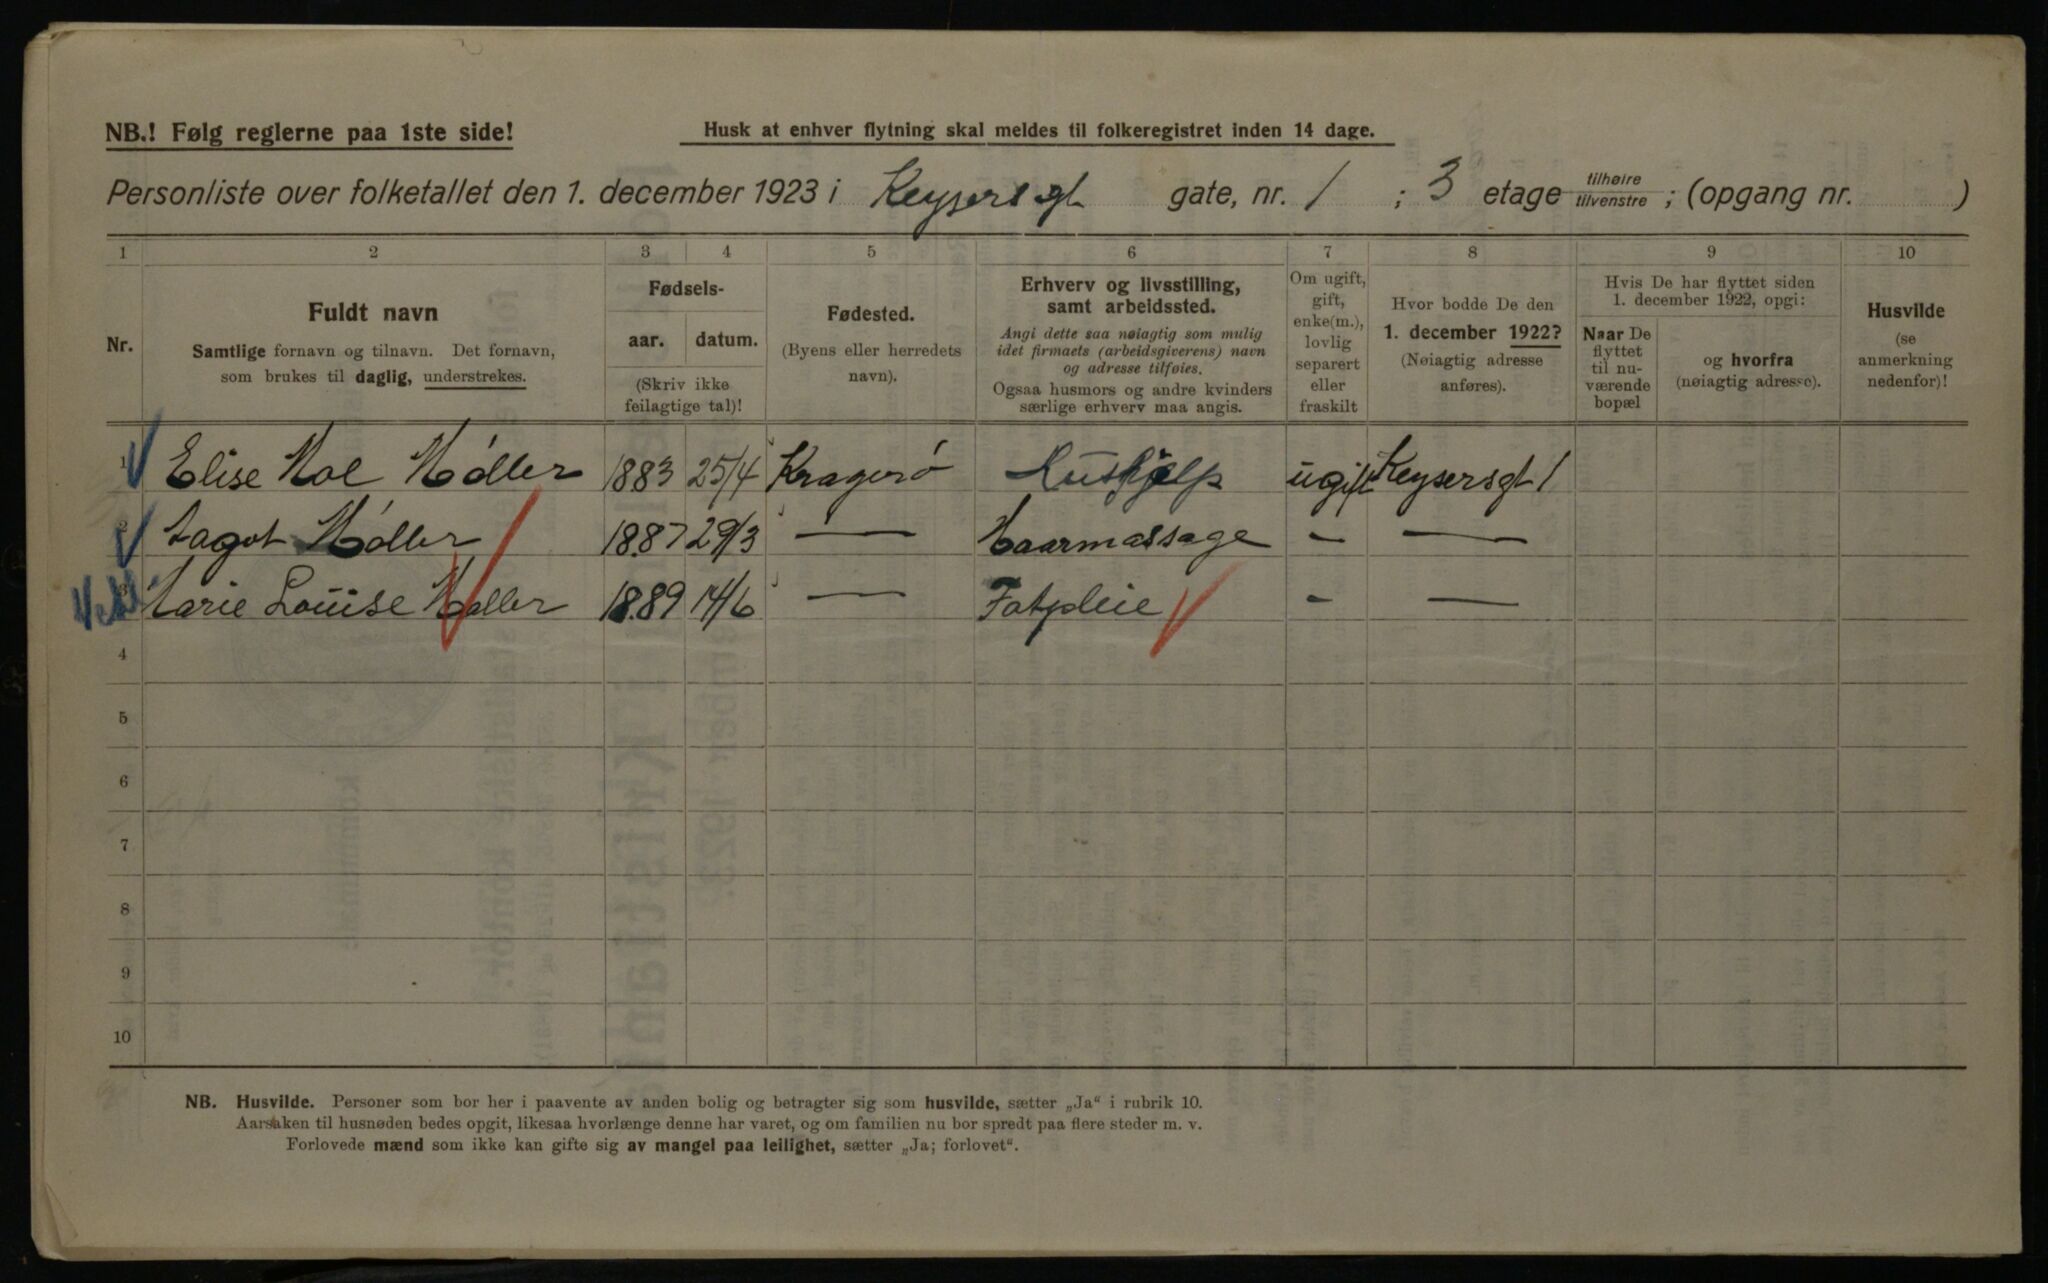 NB.! Følg reglerne paa 1ste side!
Husk at enhver flytning skal meldes til folkeregistret inden 14 dage.
Personliste over folketallet den 1. december 1923 i Keysersgt gate, nr. 1 ; 3 etage tilhøire tilvenstre ; (opgang nr. )
1 2 3 4 5 6 7 8 9 10
Nr.
Fuldt navn
Samtlige fornavn og tilnavn. Det fornavn,
som brukes til daglig, understrekes.
Fødsels-
aar. datum.
(Skriv ikke
feilagtige tal)!
Fødested.
(Byens eller herredets
navn).
Erhverv og livsstilling,
samt arbeidssted.
Angi dette saa nøiagtig som mulig
idet firmaets (arbeidsgiverens) navn
og adresse tilføies.
Ogsaa husmors og andre kvinders
særlige erhverv maa angis.
Om ugift,
gift,
enke(m.),
lovlig
separert
eller
fraskilt
Hvor bodde De den
1. december 1922?
(Nøiagtig adresse
anføres).
Hvis De har flyttet siden
1. december 1922, opgi:
Naar De
flyttet
til nu-
værende
bopæl
og hvorfra
(nøiagtig adresse).
Husvilde
(se
anmerkning
nedenfor)!
1 Elise Moe Møller 1883 25/4 Kragerø Hushjelp ugift Keysersgt 1
2 Aagot Møller 1887 29/3 — Haarmassage - —
3 Marie Louise Møller 1889 14/6 — Fotpleie - —
4
5
6
7
8
9
10
NB. Husvilde. Personer som bor her i paavente av anden bolig og betragter sig som husvilde, sætter „Ja“ i rubrik 10.
Aarsaken til husnøden bedes opgit, likesaa hvorlænge denne har varet, og om familien nu bor spredt paa flere steder m. v.
Forlovede mænd som ikke kan gifte sig av mangel paa leilighet, sætter „Ja; forlovet“.